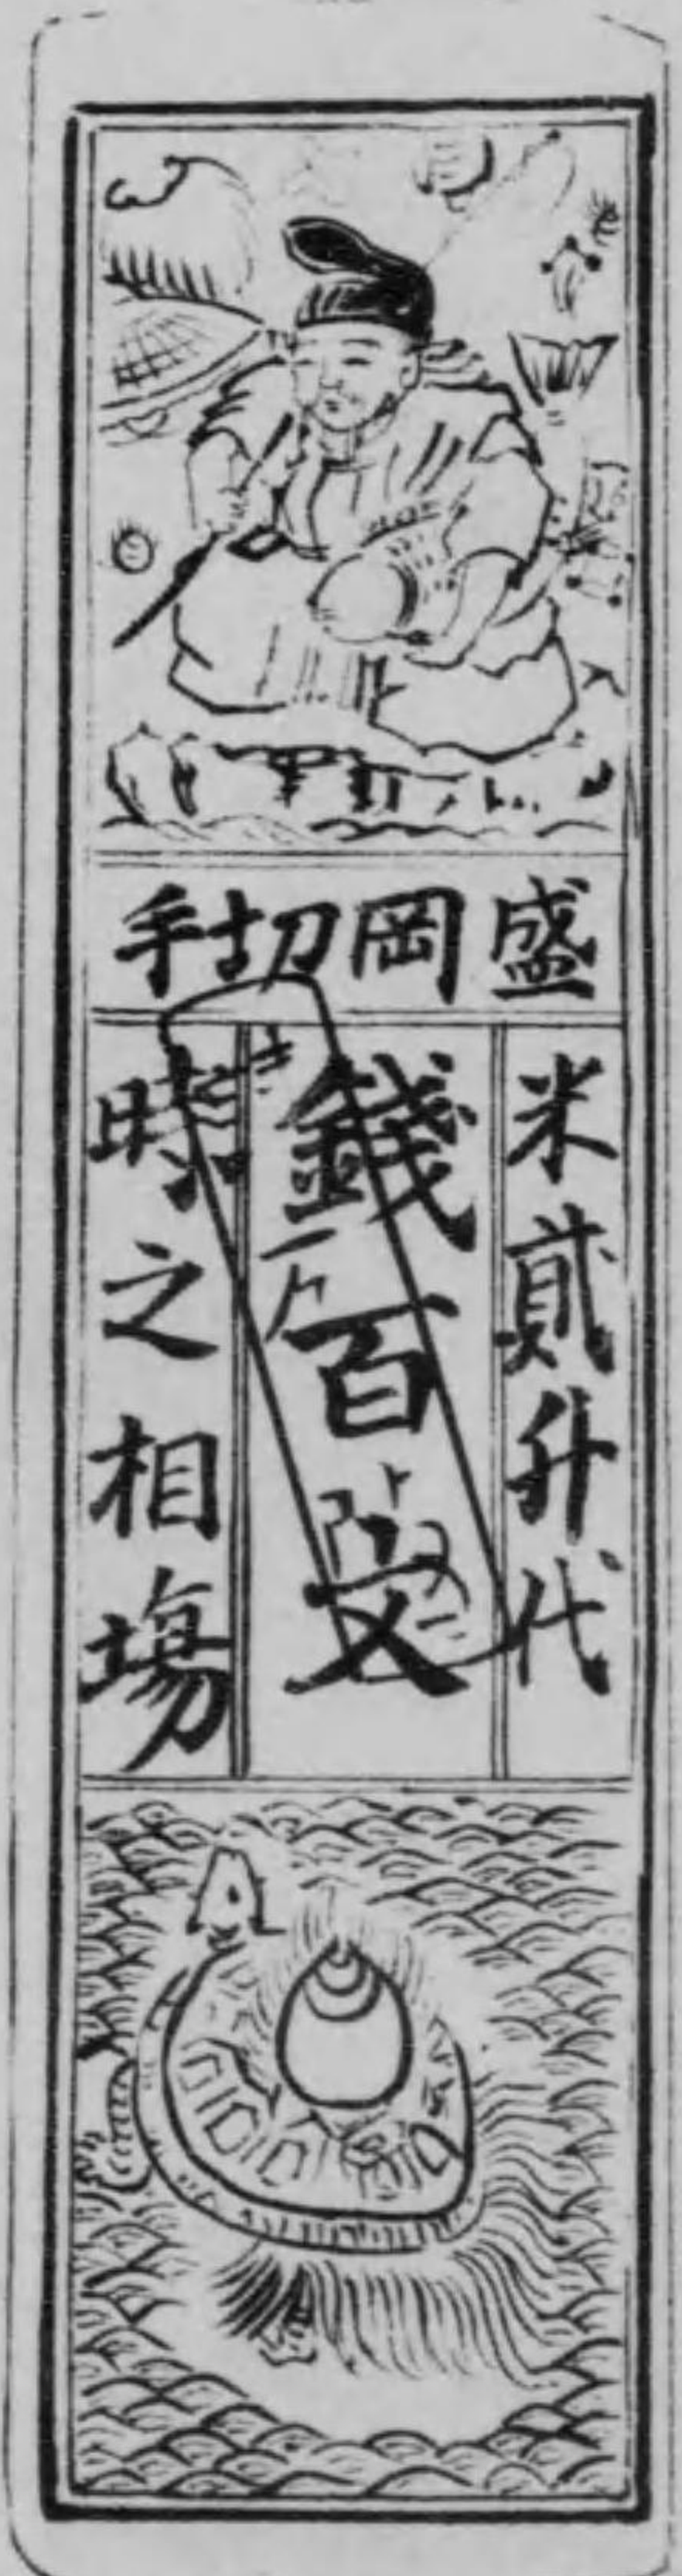 盛岡切手
米貳升代
錢百文
時之相場